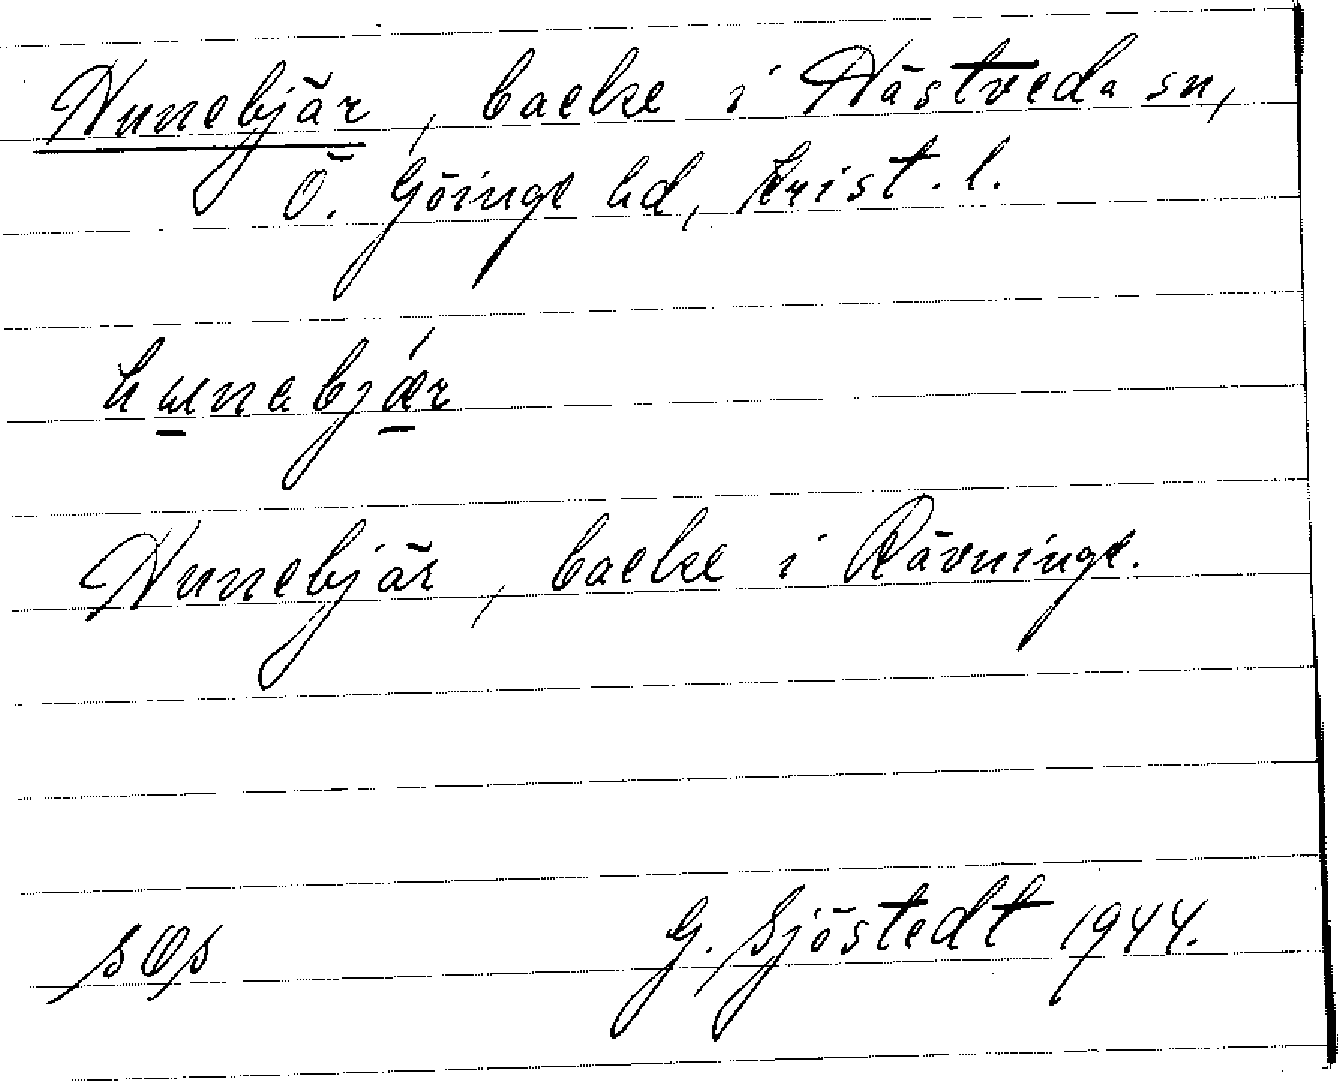 Hunebjär, backe i Hästveda sn,
Ö. Göinge hd, Krist. l.
hunabjǽr
Hunebjär, backe i Rävninge.
G. Sjöstedt 1944.